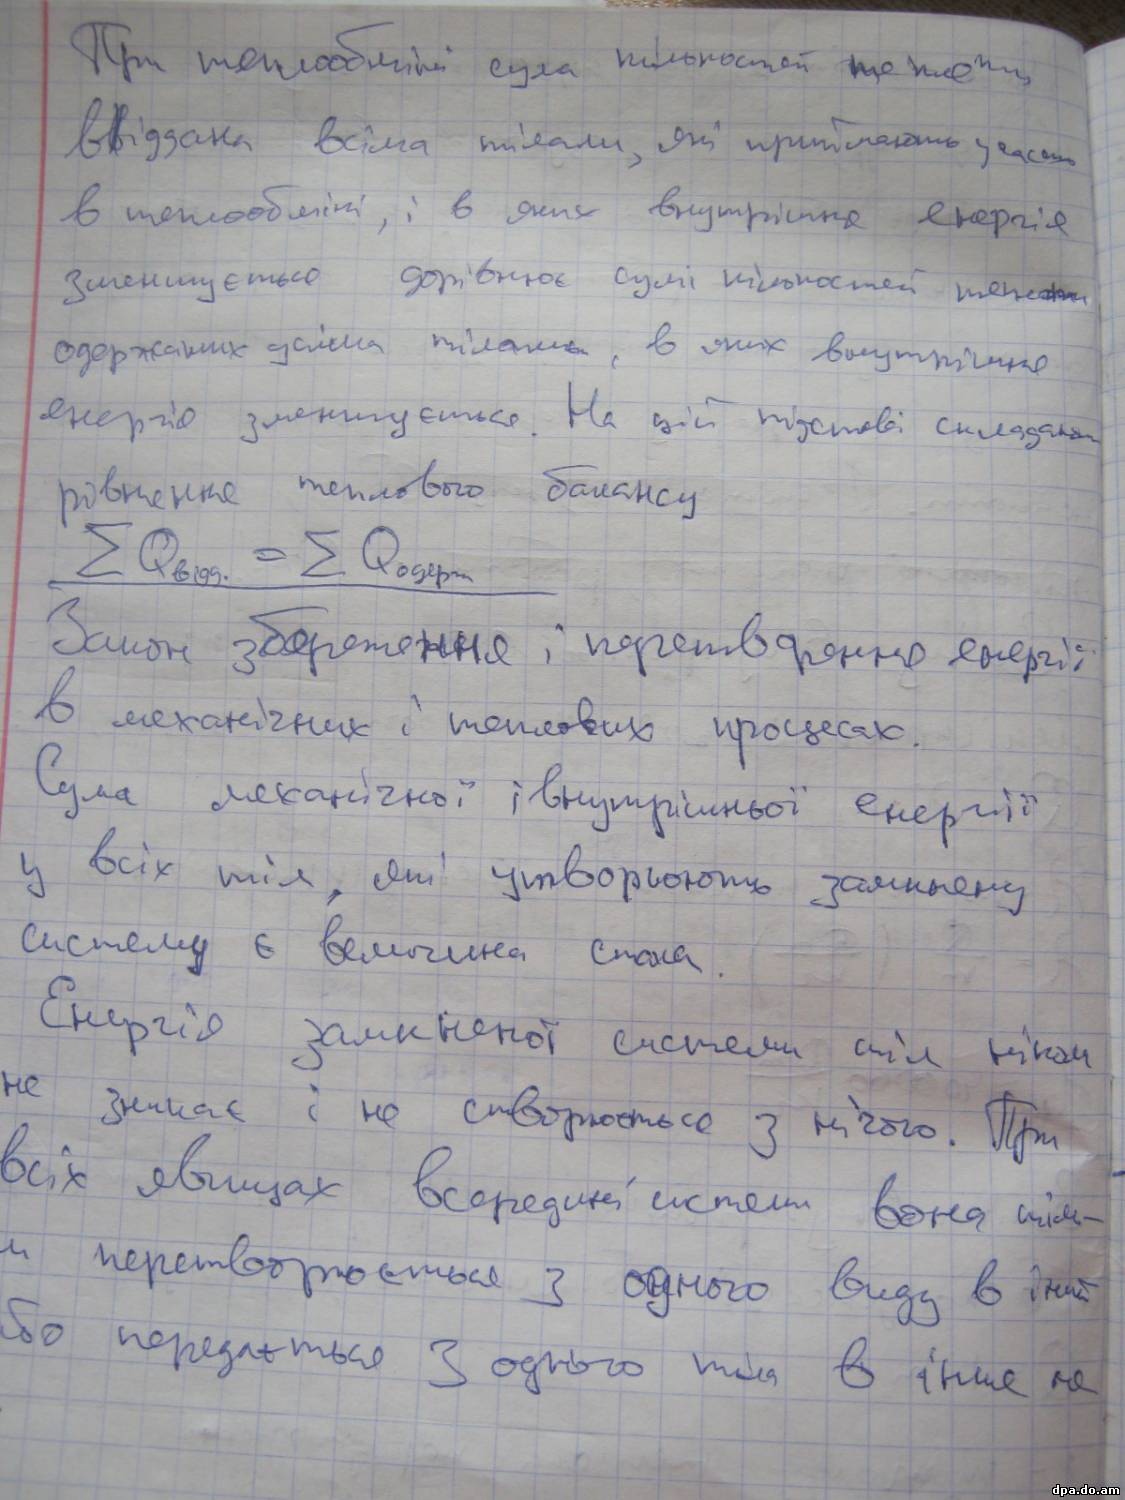 При теплообміні сума кількостей теплоти
віддана всіма тілами, які приймають участь
в теплообміні, і в яких внутрішня енергія
зменшується дорівнює сумі кількостей
одержаних тілами, в яких внутрішня
енергія зменшується. На цій підставі складають
рівняння теплового балансу
∑Qвідд. = ∑Qодерж
Закон збереження і перетворення енергії
в механічних і теплових процесах.
Сума механічної і внутрішньої енергії
у всіх тіл, які утворюють замкнену
систему є величина стала.
Енергія замкненої системи тіл ніколи
не зникає і не створюється з нічого. При
всіх явищах всередині системи вона тіль-
и перетворюється з одного виду в інший
бо передається з одного тіла в інше не
dpa.do.am